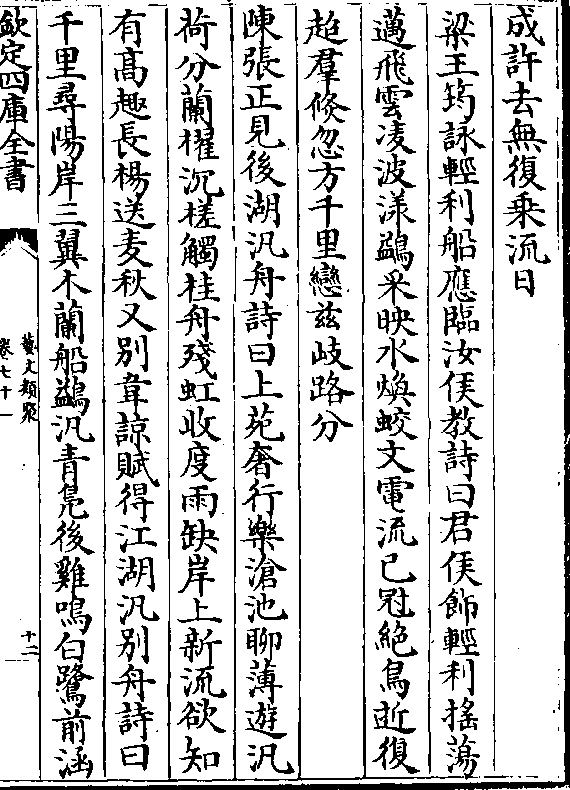 成許去無復乗流日
梁王筠詠輕利船應臨汝侯教詩曰君侯飾輕利搖蕩
邁飛雲凌波漾鷁采映水煥蛟文電流已冠絶鳥逝復
超羣倐忽方千里戀兹岐路分
陳張正見後湖汎舟詩曰上苑奢行樂滄池聊薄遊汎
荷分蘭櫂沉槎觸桂舟殘虹收度雨缺岸上新流欲知
有髙趣長楊送麦秋又别韋諒賦得江湖汎别舟詩曰
千里尋陽岸三翼木蘭船鷁汎青鳬後雞鳴白鷺前涵
欽定四庫全書
藝文類聚
卷七十一
十二